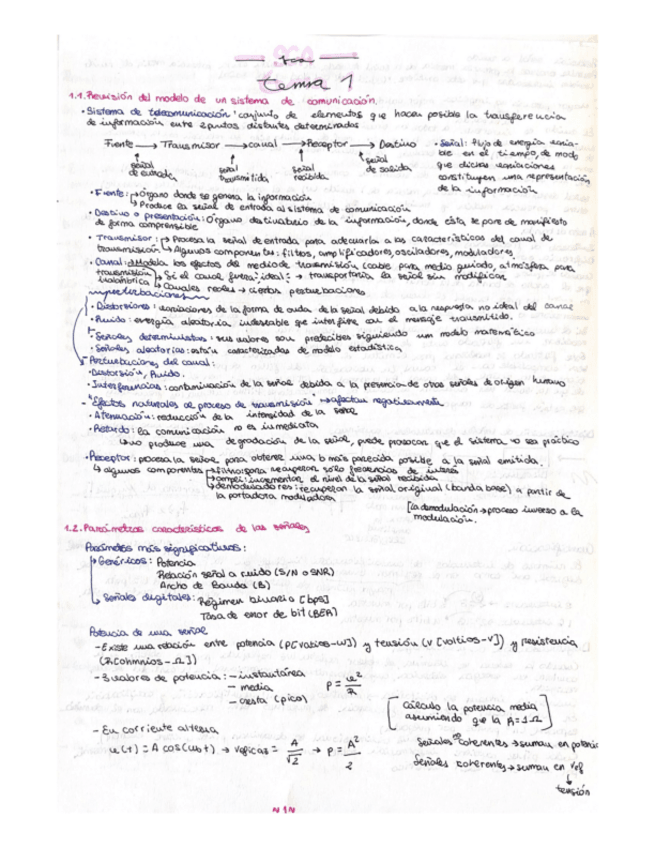 tema 1
1.1. Revisión del modelo de un sistema de comunicación.
• Sistema de telecomunicación: conjunto de elementos que hacen posible la transferencia
de información entre 2 puntos distantes determinados
Fuente → Transmisor → canal → Receptor → Destino • Señal: flujo de energía varia-
ble en el tiempo, de modo
señal de entrada señal transmitida señal recibida señal de salida que dichas variaciones
constituyen una representación
de la información
• Fuente: → Órgano donde se genera la información
↳ Produce la señal de entrada al sistema de comunicación
• Destino o presentación: Órgano destinatario de la información, donde ésta se pone de manifiesto
de forma comprensible
• Transmisor: → Procesa la señal de entrada para adecuarla a las características del canal de
transmisión ↳ Algunos componentes: filtros, amplificadores, osciladores, moduladores
• Canal: → Modela los efectos del medio de transmisión (cable para medio guiado, atmósfera para
transmisión inalámbrica ↳ Si el canal fuera ideal: → transportaría la señal sin modificar
↳ Canales reales → ciertas perturbaciones
imperturbaciones
• Distorsiones: variaciones de la forma de onda de la señal debido a la respuesta no ideal del canal
• Ruido: energía aleatoria, indeseable que interfiere con el mensaje transmitido.
• Señales deterministas: sus valores son predecibles siguiendo un modelo matemático
• Señales aleatorias: están caracterizadas de modelo estadístico
Perturbaciones del canal:
• Distorsión, Ruido.
• Interferencias: contaminación de la señal debida a la presencia de otras señales de origen humano
- "Efectos naturales al proceso de transmisión" → afectan negativamente
• Atenuación: reducción de la intensidad de la señal
• Retardo: la comunicación no es inmediata
↳ no produce una degradación de la señal, puede provocar que el sistema no sea práctico
• Receptor: procesa la señal para obtener una lo más parecida posible a la señal emitida.
↳ algunos componentes → filtros: para recuperar solo frecuencias de interés
→ ampli: incrementar el nivel de la señal recibida
→ demoduladores: recuperan la señal original (banda base) a partir de
la portadora moduladora
[la demodulación → proceso inverso a la
modulación.
1.2. Parámetros característicos de las señales
Parámetros más significativos:
↳ Genéricos: Potencia
Relación señal a ruido (S/N o SNR)
Ancho de Banda (B)
↳ Señales digitales: Régimen binario [bps]
Tasa de error de bit (BER)
Potencia de una señal
- Existe una relación entre potencia (P [vatios-W]) y tensión (V [voltios-V]) y resistencia
(R [ohmnios-Ω])
- 3 valores de potencia: - instantánea
- media
- cresta (pico)
P = v²/R
[cálculo la potencia media
asumiendo que la R=1Ω]
- En corriente alterna
v(t) = A cos(ω₀t) → Veficas = A/√2 → P = A²/2
Señales no coherentes → suman en potencia
Señales coherentes → suman en Vef
↓
tensión